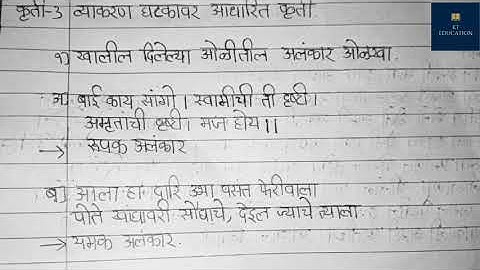 कृती-3 व्याकरण घटकावर आधारित कृती
KI
EDUCATION
१) खालील दिलेल्या ओळीतील अलंकार ओळखा.
अ) बाई काय सांगो। स्वामीची ती दृष्टी।
अमृताची दृष्टी। मज होय।।
→ रूपक अलंकार
ब) आला हा दारि उभा वसंत फेरीवाला
पोते खांद्यावरी सौद्याचे, देईल ज्याचे त्याला.
→ यमक अलंकार.